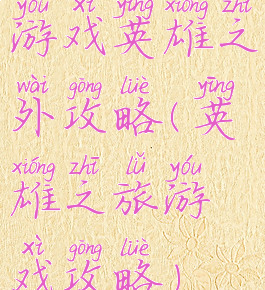 yóu xì yīng xióng zhī
游戏英雄之
wài gōng lüè yīng
外攻略(英
xióng zhī lǚ yóu
雄之旅游
xì gōng lüè
戏攻略)